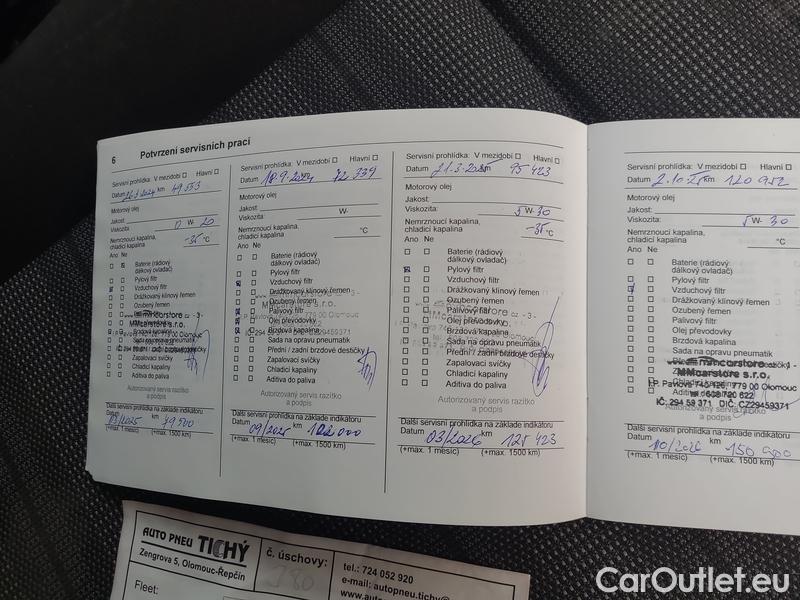 6 Potvrzení servisních prací
Servisní prohlídka: V mezidobí Hlavní
Datum 26.3.2024 km 49 553
Motorový olej
Jakost:
Viskozita: 0 W- 20
Nemrznoucí kapalina,
chladicí kapalina -35 °C
Ano Ne
Baterie (rádiový
dálkový ovladač)
Pylový filtr
Vzduchový filtr
Drážkovaný klínový řemen
Ozubený řemen
Palivový filtr
Olej převodovky
Brzdová kapalina
Sada na opravu pneumatik
Přední / zadní brzdové destičky
Zapalovací svíčky
Chladicí kapaliny
Aditiva do paliva
MMcarstore s.r.o.
Autorizovaný servis razítko
a podpis
Další servisní prohlídka na základě indikátoru
Datum km
03/2025 79500
(+max. 1 měsíc) (+max. 1500 km)
Servisní prohlídka: V mezidobí Hlavní
Datum 18.9.2024 km 72 339
Motorový olej
Jakost:
Viskozita: W-
Nemrznoucí kapalina,
chladicí kapalina °C
Ano Ne
Baterie (rádiový
dálkový ovladač)
Pylový filtr
Vzduchový filtr
Drážkovaný klínový řemen
Ozubený řemen
Palivový filtr
Olej převodovky
Brzdová kapalina
Sada na opravu pneumatik
Přední / zadní brzdové destičky
Zapalovací svíčky
Chladicí kapaliny
Aditiva do paliva
MMcarstore s.r.o.
Autorizovaný servis razítko
a podpis
Další servisní prohlídka na základě indikátoru
Datum km
09/2025 102 000
(+max. 1 měsíc) (+max. 1500 km)
Servisní prohlídka: V mezidobí Hlavní
Datum 21.3.2025 km 95 423
Motorový olej
Jakost:
Viskozita: 5 W- 30
Nemrznoucí kapalina,
chladicí kapalina -35 °C
Ano Ne
Baterie (rádiový
dálkový ovladač)
Pylový filtr
Vzduchový filtr
Drážkovaný klínový řemen
Ozubený řemen
Palivový filtr
Olej převodovky
Brzdová kapalina
Sada na opravu pneumatik
Přední / zadní brzdové destičky
Zapalovací svíčky
Chladicí kapaliny
Aditiva do paliva
Autorizovaný servis razítko
a podpis
Další servisní prohlídka na základě indikátoru
Datum km
03/2026 125 423
(+max. 1 měsíc) (+max. 1500 km)
Servisní prohlídka: V mezidobí Hlavní
Datum 2.10.25 km 120 952
Motorový olej
Jakost:
Viskozita: 5 W- 30
Nemrznoucí kapalina,
chladicí kapalina °C
Ano Ne
Baterie (rádiový
dálkový ovladač)
Pylový filtr
Vzduchový filtr
Drážkovaný klínový řemen
Ozubený řemen
Palivový filtr
Olej převodovky
Brzdová kapalina
Sada na opravu pneumatik
MMcarstore s.r.o.
I.P. Pavlova 740/126, 779 00 Olomouc
tel: 608 720 622
IČ: 294 59 371 DIČ: CZ29459371
Autorizovaný servis razítko
a podpis
Další servisní prohlídka na základě indikátoru
Datum km
10/2026 150 900
(+max. 1 měsíc) (+max. 1500 km)
AUTO PNEU TICHÝ
Zengrova 5, Olomouc-Řepčín
č. úschovy:
J80
tel.: 724 052 920
e-mail: autopneu.tichy@
Fleet:
CarOutlet.eu